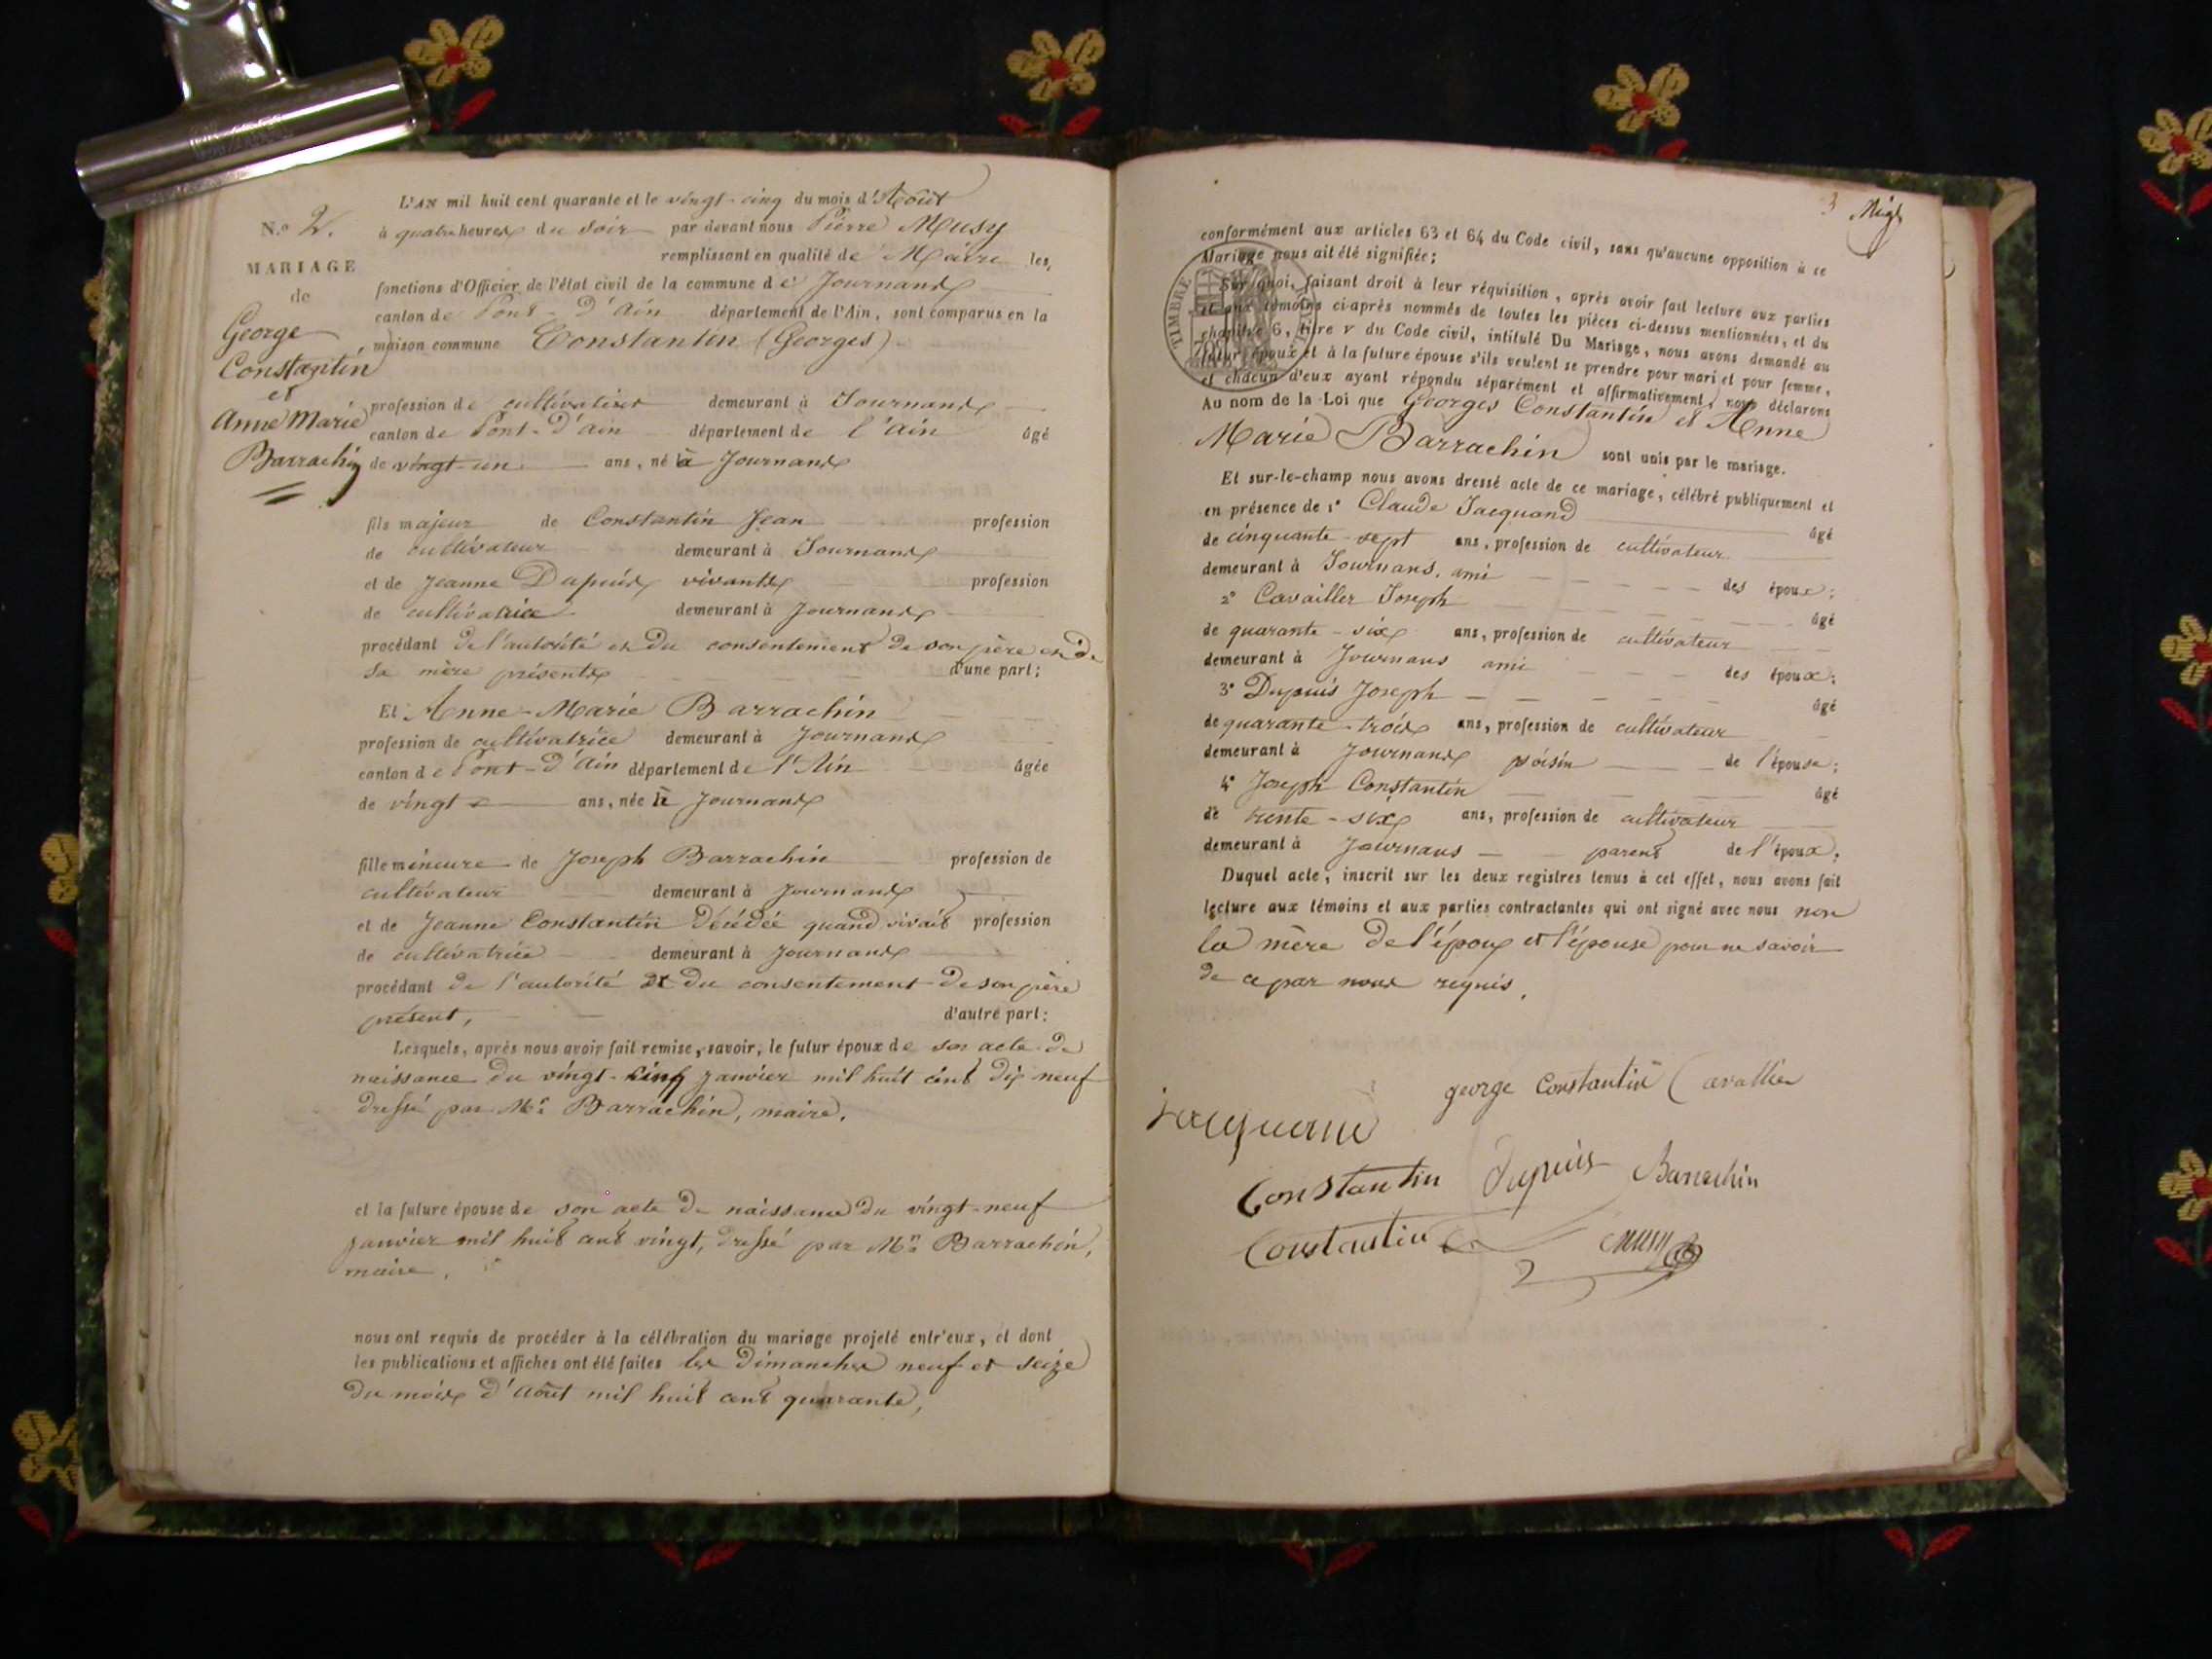 N.º 2.
MARIAGE
de
George
Constantin
et
Anne Marie
Barrachin
L'AN mil huit cent quarante et le vingt-cinq du mois d'Août
à quatre heures du soir par devant nous Pierre Musy
remplissant en qualité de Maire les
fonctions d'Officier de l'état civil de la commune de Journans
canton de Pont-d'Ain département de l'Ain, sont comparus en la
maison commune Constantin (Georges)
profession de cultivateur demeurant à Journans
canton de Pont-d'ain département de l'ain âgé
de vingt-un ans, né à Journans
fils majeur de Constantin Jean profession
de cultivateur demeurant à Journans
et de Jeanne Dupuis vivants profession
de cultivatrice demeurant à Journans
procédant de l'autorité et du consentement de son père et de
sa mère présents d'une part;
Et Anne-Marie Barrachin
profession de cultivatrice demeurant à Journans
canton de Pont-d'Ain département de l'Ain âgée
de vingt ans, née à Journans
fille mineure de Joseph Barrachin profession de
cultivateur demeurant à Journans
et de Jeanne Constantin décédée quand vivait profession
de cultivatrice demeurant à Journans
procédant de l'autorité et du consentement de son père
présent, d'autre part:
Lesquels, après nous avoir fait remise, savoir, le futur époux de son acte de
naissance du vingt-cinq janvier mil huit cent dix neuf
dressé par Mr Barrachin, maire.
et la future épouse de son acte de naissance du vingt-neuf
janvier mil huit cent vingt, dressé par Mr Barrachin,
maire.
nous ont requis de procéder à la célébration du mariage projeté entr'eux, et dont
les publications et affiches ont été faites les dimanches neuf et seize
du mois d'août mil huit cent quarante,
3
conformément aux articles 63 et 64 du Code civil, sans qu'aucune opposition à ce
Mariage nous ait été signifiée;
Sur quoi, faisant droit à leur réquisition, après avoir fait lecture aux parties
et aux témoins ci-après nommés de toutes les pièces ci-dessus mentionnées, et du
chapitre 6, titre v du Code civil, intitulé Du Mariage, nous avons demandé au
futur époux et à la future épouse s'ils veulent se prendre pour mari et pour femme,
et chacun d'eux ayant répondu séparément et affirmativement, nous déclarons
Au nom de la Loi que Georges Constantin et Anne
Marie Barrachin sont unis par le mariage.
TIMBRE ROYAL
Et sur-le-champ nous avons dressé acte de ce mariage, célébré publiquement et
en présence de 1º Claude Jacquand âgé
de cinquante-sept ans, profession de cultivateur
demeurant à Journans, ami des époux;
2º Cavailler Joseph âgé
de quarante-six ans, profession de cultivateur
demeurant à Journans ami des époux;
3º Dupuis Joseph âgé
de quarante-trois ans, profession de cultivateur
demeurant à Journans voisin de l'épouse;
4º Joseph Constantin âgé
de trente-six ans, profession de cultivateur
demeurant à Journans parent de l'époux;
Duquel acte, inscrit sur les deux registres tenus à cet effet, nous avons fait
lecture aux témoins et aux parties contractantes qui ont signé avec nous non
la mère de l'époux et l'épouse pour ne savoir
de ce par nous requis.
george Constantin Cavallier
Jacquand
Constantin Dupuis Barrachin
Constantin Musy